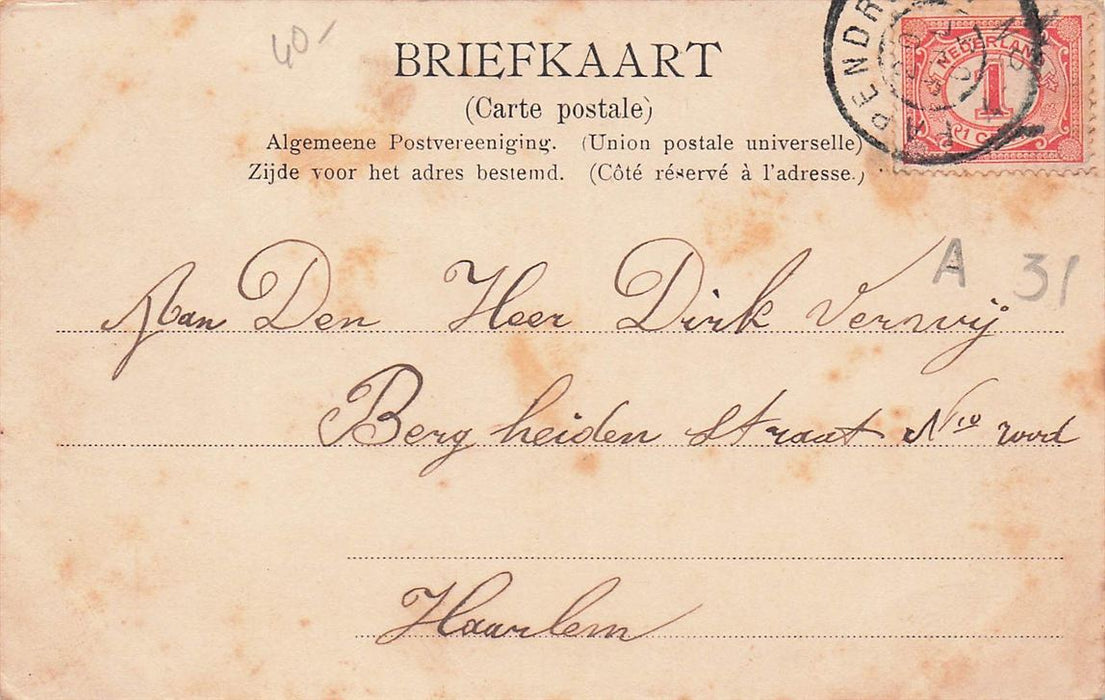 40-
BRIEFKAART
(Carte postale)
Algemeene Postvereeniging. (Union postale universelle)
Zijde voor het adres bestemd. (Côté réservé à l'adresse.)
NEDERLAND
1
PENDR
A 31
Aan Den Heer Dirk Verwij
Berg heiden straat
Haarlem